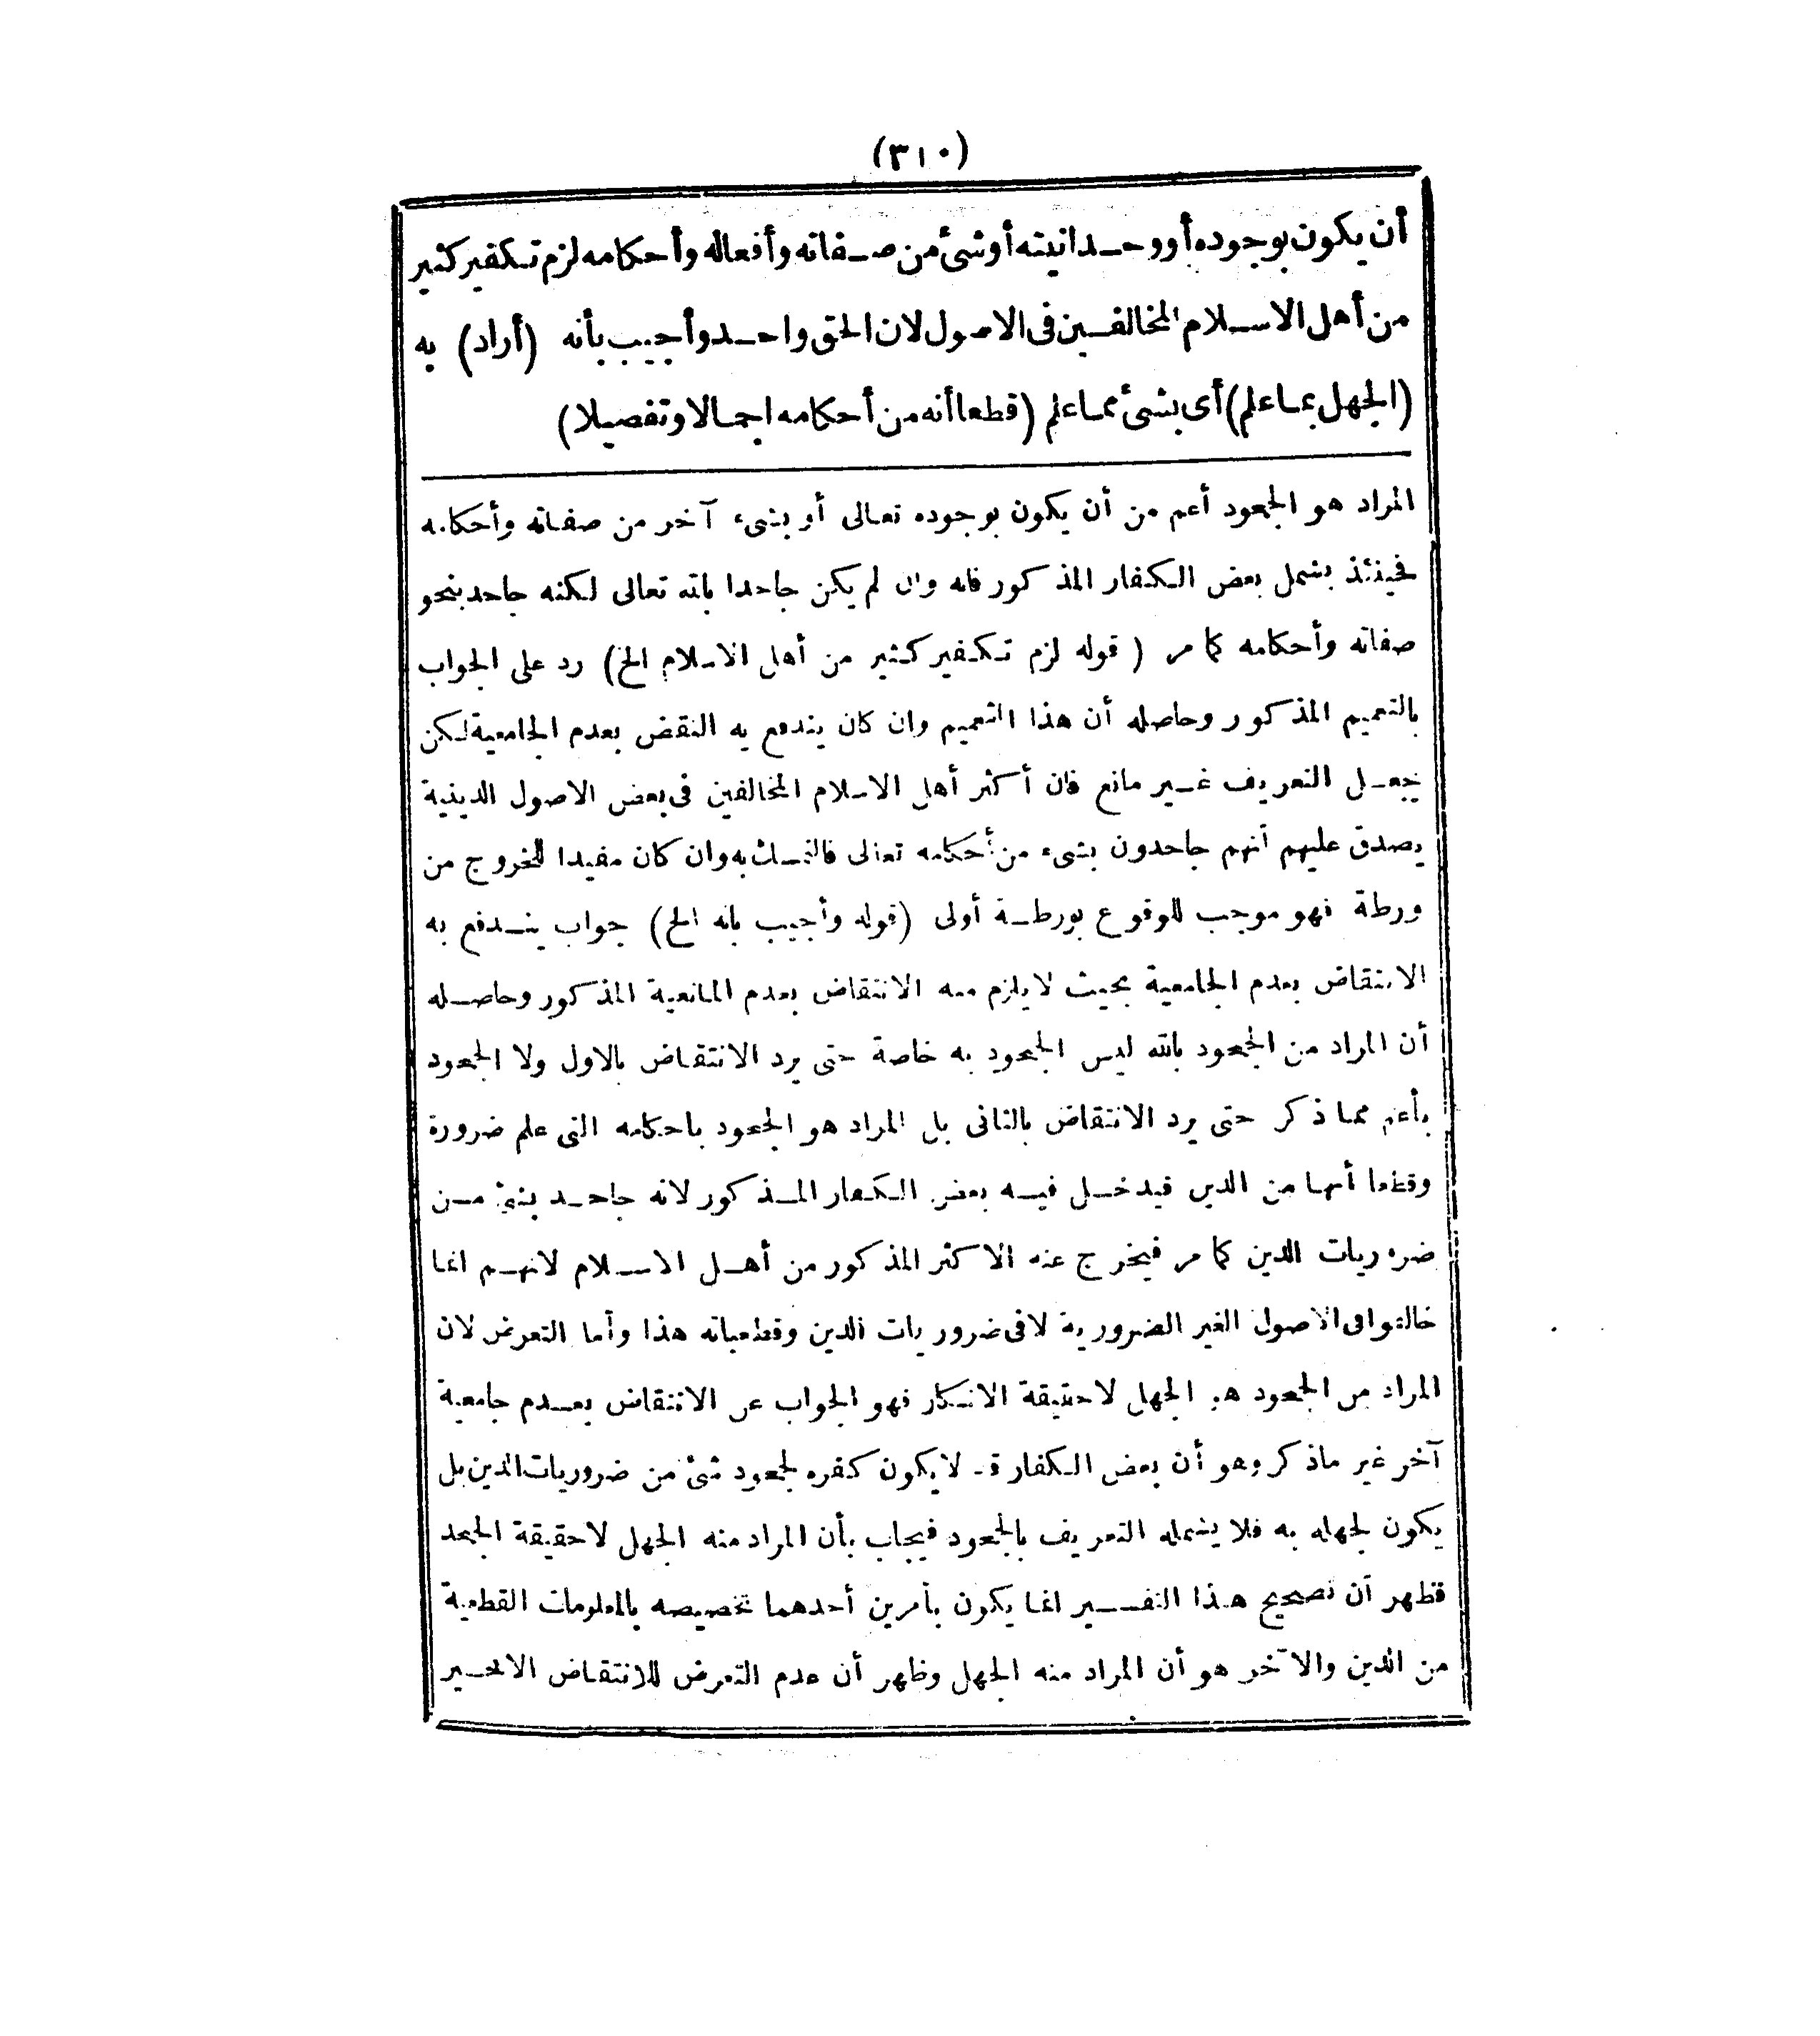 (٣١٠)
أن يكون بوجوده أو وحدانيته أو شئ من صفاته وأفعاله وأحكامه لزم تكفير كثير
من أهل الاسلام المخالفين فى الاصول لان الحق واحد وأجيب بأنه (أراد) به
(الجهل بما علم) أى بشئ مما علم (قطعا أنه من أحكامه اجمالا وتفصيلا)
المراد هو الجحود أعم من أن يكون بوجوده تعالى أو بشىء آخر من صفاته وأحكامه
فحينئذ يشمل بعض الكفار المذكور فانه وان لم يكن جاحدا بالله تعالى لكنه جاحد بنحو
صفاته وأحكامه كما مر (قوله لزم تكفير كثير من أهل الاسلام الخ) رد على الجواب
بالتعميم المذكور وحاصله أن هذا التعميم وان كان يندفع به النقض بعدم الجامعية لكن
يجعل التعريف غير مانع فان أكثر أهل الاسلام المخالفين فى بعض الاصول الدينية
يصدق عليهم أنهم جاحدون بشىء من أحكامه تعالى فالتمسك به وان كان مفيدا للخروج من
ورطة فهو موجب للوقوع بورطة أولى (قوله وأجيب بانه الخ) جواب يندفع به
الانتقاض بعدم الجامعية بحيث لا يلزم منه الانتقاض بعدم المانعية المذكور وحاصله
أن المراد من الجحود بالله ليس الجحود به خاصة حتى يرد الانتقاض بالاول ولا الجحود
بأعم مما ذكر حتى يرد الانتقاض بالثانى بل المراد هو الجحود باحكامه التى علم ضرورة
وقطعا أنها من الدين فيدخل فيه بعض الكفار المذكور لانه جاحد بشئ من
ضروريات الدين كما مر فيخرج عنه الاكثر المذكور من أهل الاسلام لانهم انما
خالفوا فى الاصول الغير الضرورية لا فى ضروريات الدين وقطعياته هذا وأما التعرض لان
المراد من الجحود هو الجهل لا حقيقة الانكار فهو الجواب عن الانتقاض بعدم جامعية
آخر غير ماذكر وهو أن بعض الكفار قد لا يكون كفره لجحود شئ من ضروريات الدين بل
يكون لجهله به فلا يشمله التعريف بالجحود فيجاب بأن المراد منه الجهل لا حقيقة الجحد
فظهر أن تصحيح هذا التفسير انما يكون بأمرين أحدهما تخصيصه بالمعلومات القطعية
من الدين والآخر هو أن المراد منه الجهل وظهر أن عدم التعرض للانتقاض الاخير